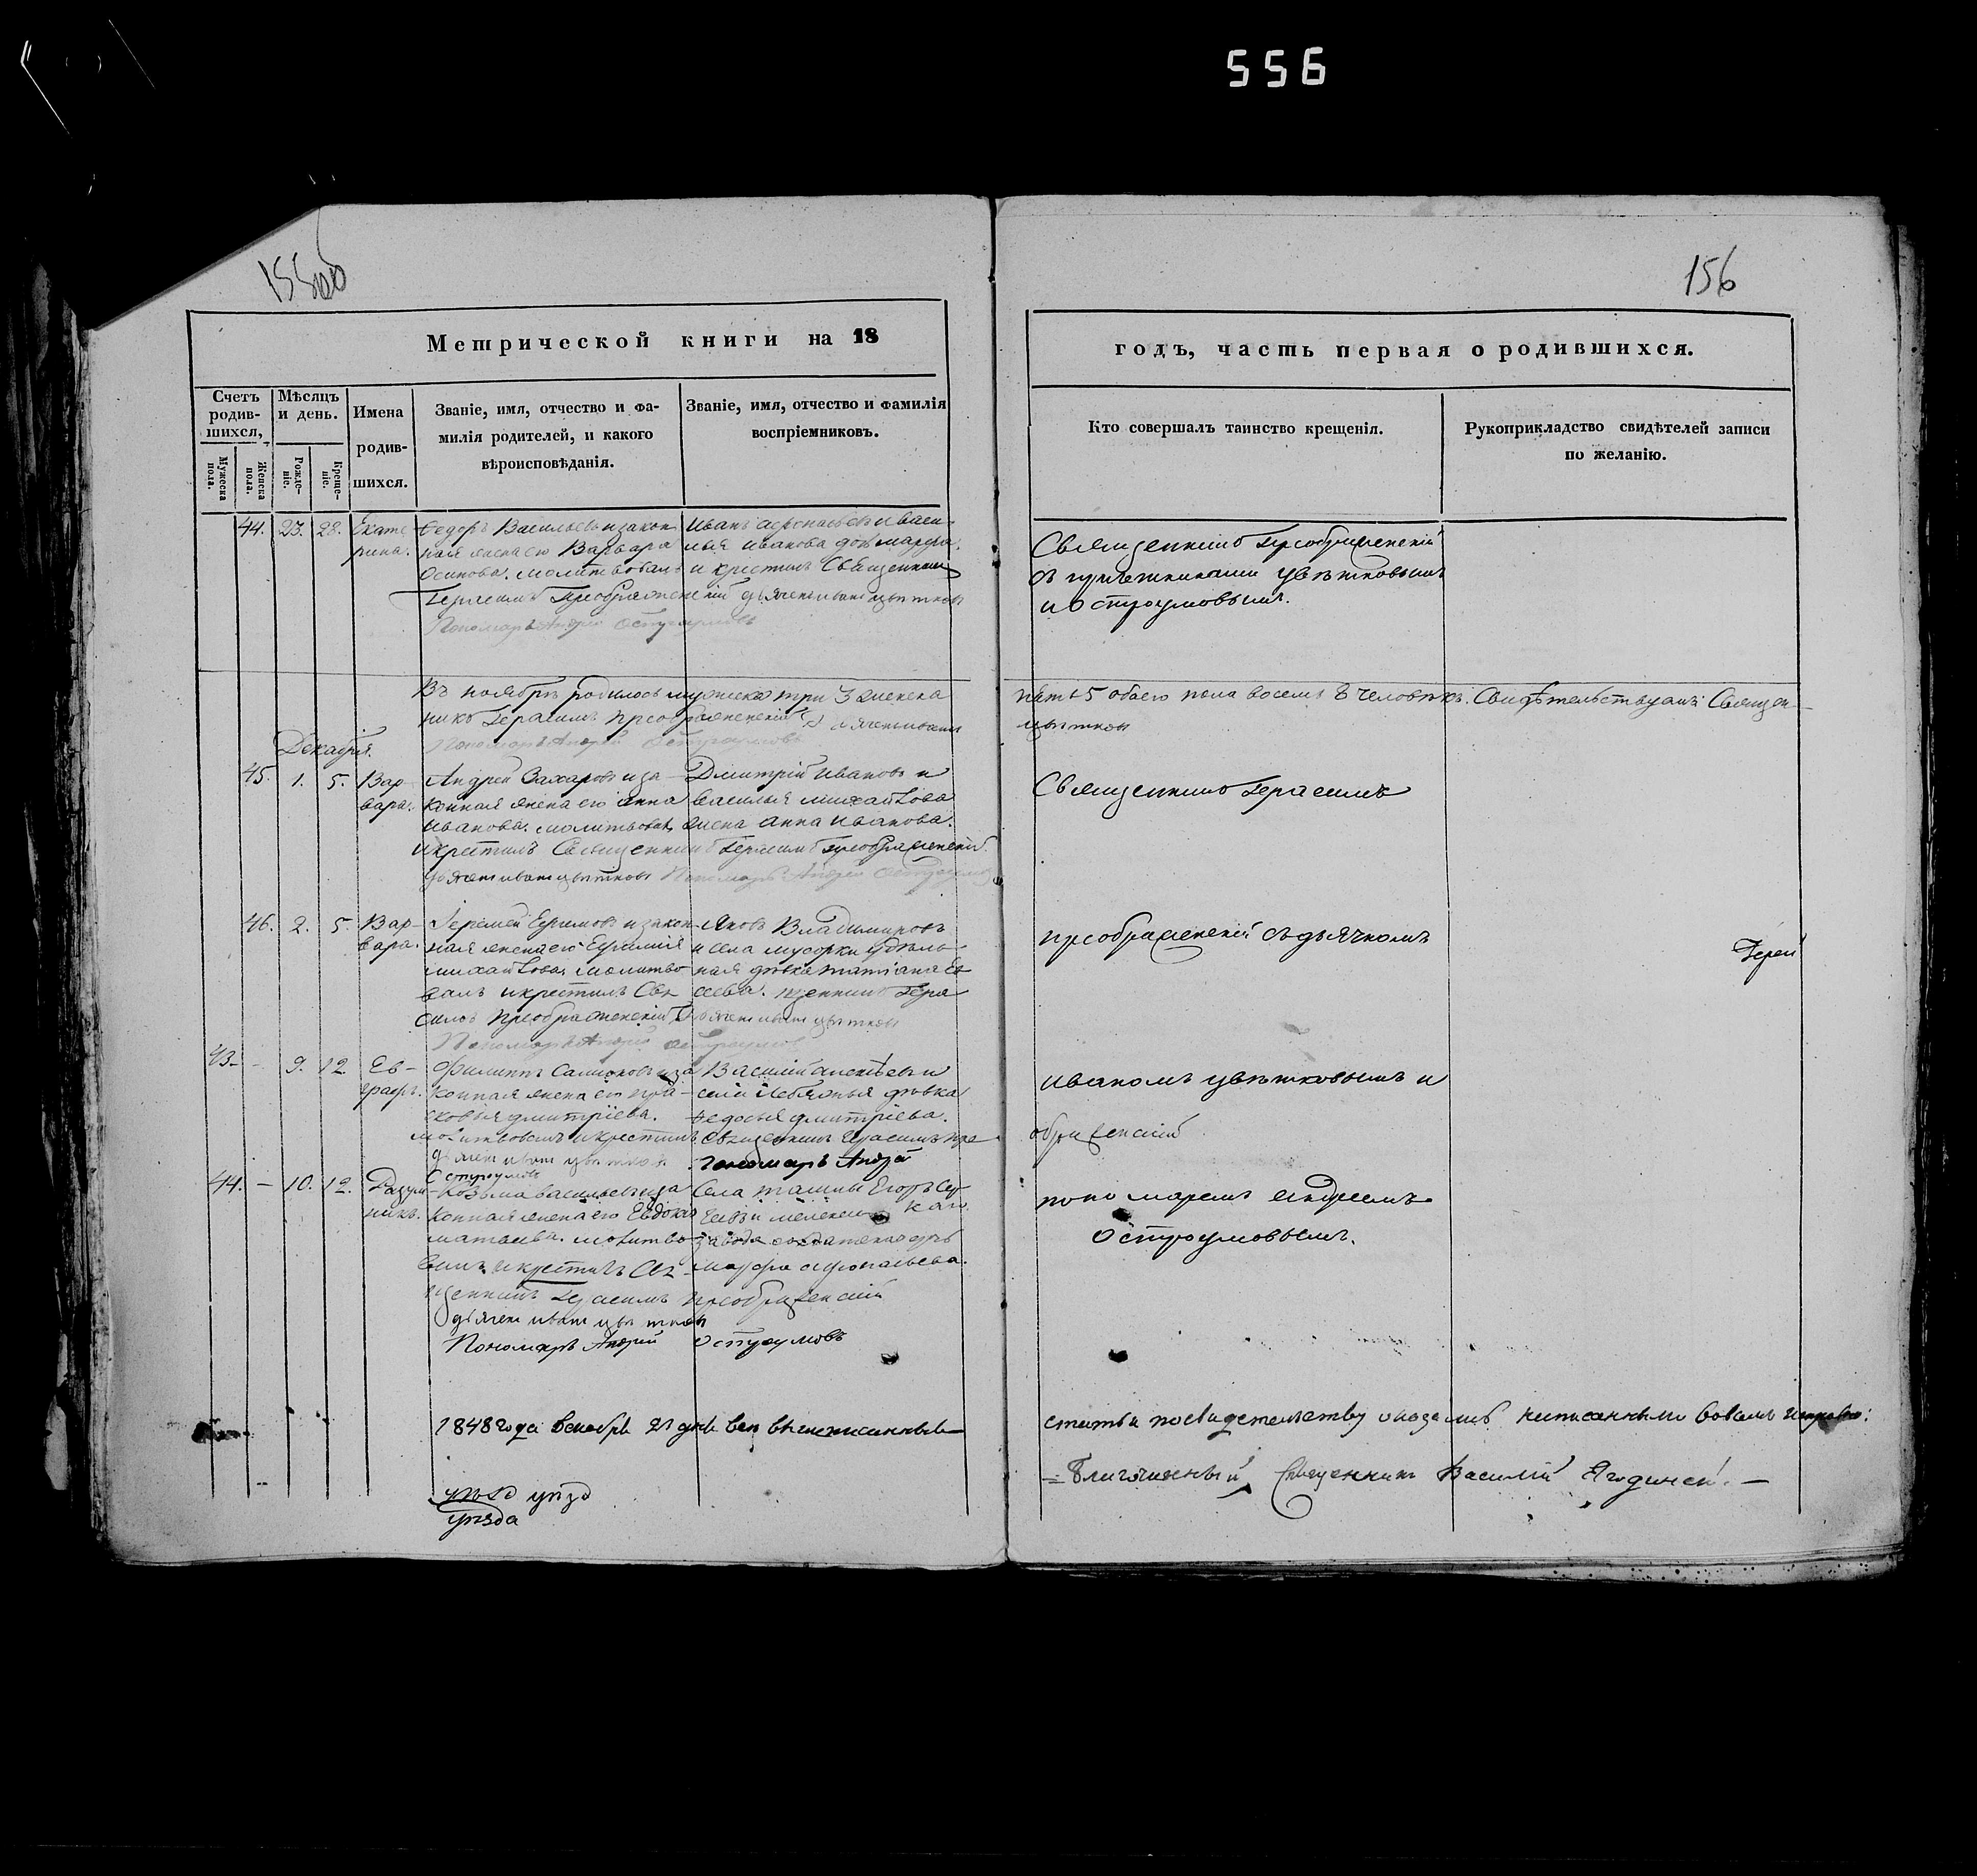 556
155об
156
Метрической книги на 18
годъ, часть первая о родившихся.
Счетъ родив-
шихся,
Мѣсяцъ
и день.
Имена
родив-
шихся.
Званіе, имя, отчество и фа-
милія родителей, и какого
вѣроисповѣданія.
Званіе, имя, отчество и фамилія
воспріемниковъ.
Кто совершалъ таинство крещенія.
Рукоприкладство свидѣтелей записи
по желанію.
Мужеска пола.
Женска пола.
Рожде-
ніе.
Креще-
ніе.
44. 23. 28. Екате
рина.
Федоръ Васильевъ и закон
ная жена его Варвара
Осипова. молитвовалъ и крестилъ Священникъ
Герасимъ Преображенскій дьячекъ иванъ цвѣтковъ
Пономарь Андрей Остроумовъ
Иванъ и васи-
лья иванова марфа.
Священникъ Преображенскій
съ причетниками цвѣтковымъ
и Остроумовымъ.
Въ ноябрѣ родилось мужска три 3 женска
пять 5 обоего пола восемь 8 человѣкъ. Свидѣтельствуемъ: Священ
никъ Герасимъ Преображенскій дьячекъ иванъ
цвѣтковъ
Пономарь Андрей Остроумовъ
Декабрія.
45. 1. 5. Вар-
вара.
Андрей Захаровъ и за-
конная жена его анна
Иванова. молитвовалъ
и крестилъ Священникъ Герасимъ преображенскій
дьячекъ иванъ цвѣтковъ Пономарь Андрей Остроумовъ
Дмитрій Ивановъ и
василья михайлова
жена анна иванова.
Священникъ Герасимъ
46. 2. 5. Вар-
вара.
Іеремей Ефимовъ и закон-
ная жена его Ефимія
михайлова молитво
валъ и крестилъ Свя
щенникъ Гера
симъ Преображенскій Дьячекъ иванъ цвѣтковъ
Пономарь Андрей Остроумовъ
Яковъ Владимировъ
и села мусорки удѣль-
ная дѣвка татіана Ев
сева.
преображенскій съ дьячкомъ
Іерей
43. - 9. 12. Ев-
графъ.
Филиппъ и за
конная жена его пра-
сковья дмитріева.
молитвовалъ и крестилъ Священникъ Герасимъ пре
ображенскій
дьячекъ иванъ цвѣтковъ Пономарь Андрей
Остроумовъ
Василій алексѣевъ и
дѣвка
федосья дмитріева.
иваномъ цвѣтковымъ и
44. - 10. 12. Разум-
никъ.
Козьма васильевъ и за
конная жена его Евдокія
матвѣева. молитво-
валъ и крестилъ Свя-
щенникъ Герасимъ преображенскій
дьячекъ иванъ цвѣтковъ
Пономарь Андрей Остроумовъ
Села ташлы Егоръ
завода солдатская
марфа афонасьева.
пономаремъ андреемъ
Остроумовымъ.
1848 года 21 дня все вышеписанные
статьи по свидетельству оказались написанными во всемъ исправно:
= Благочинный, Священникъ Василій Ягодинск. —
уѣзд уѣзд
уѣзда